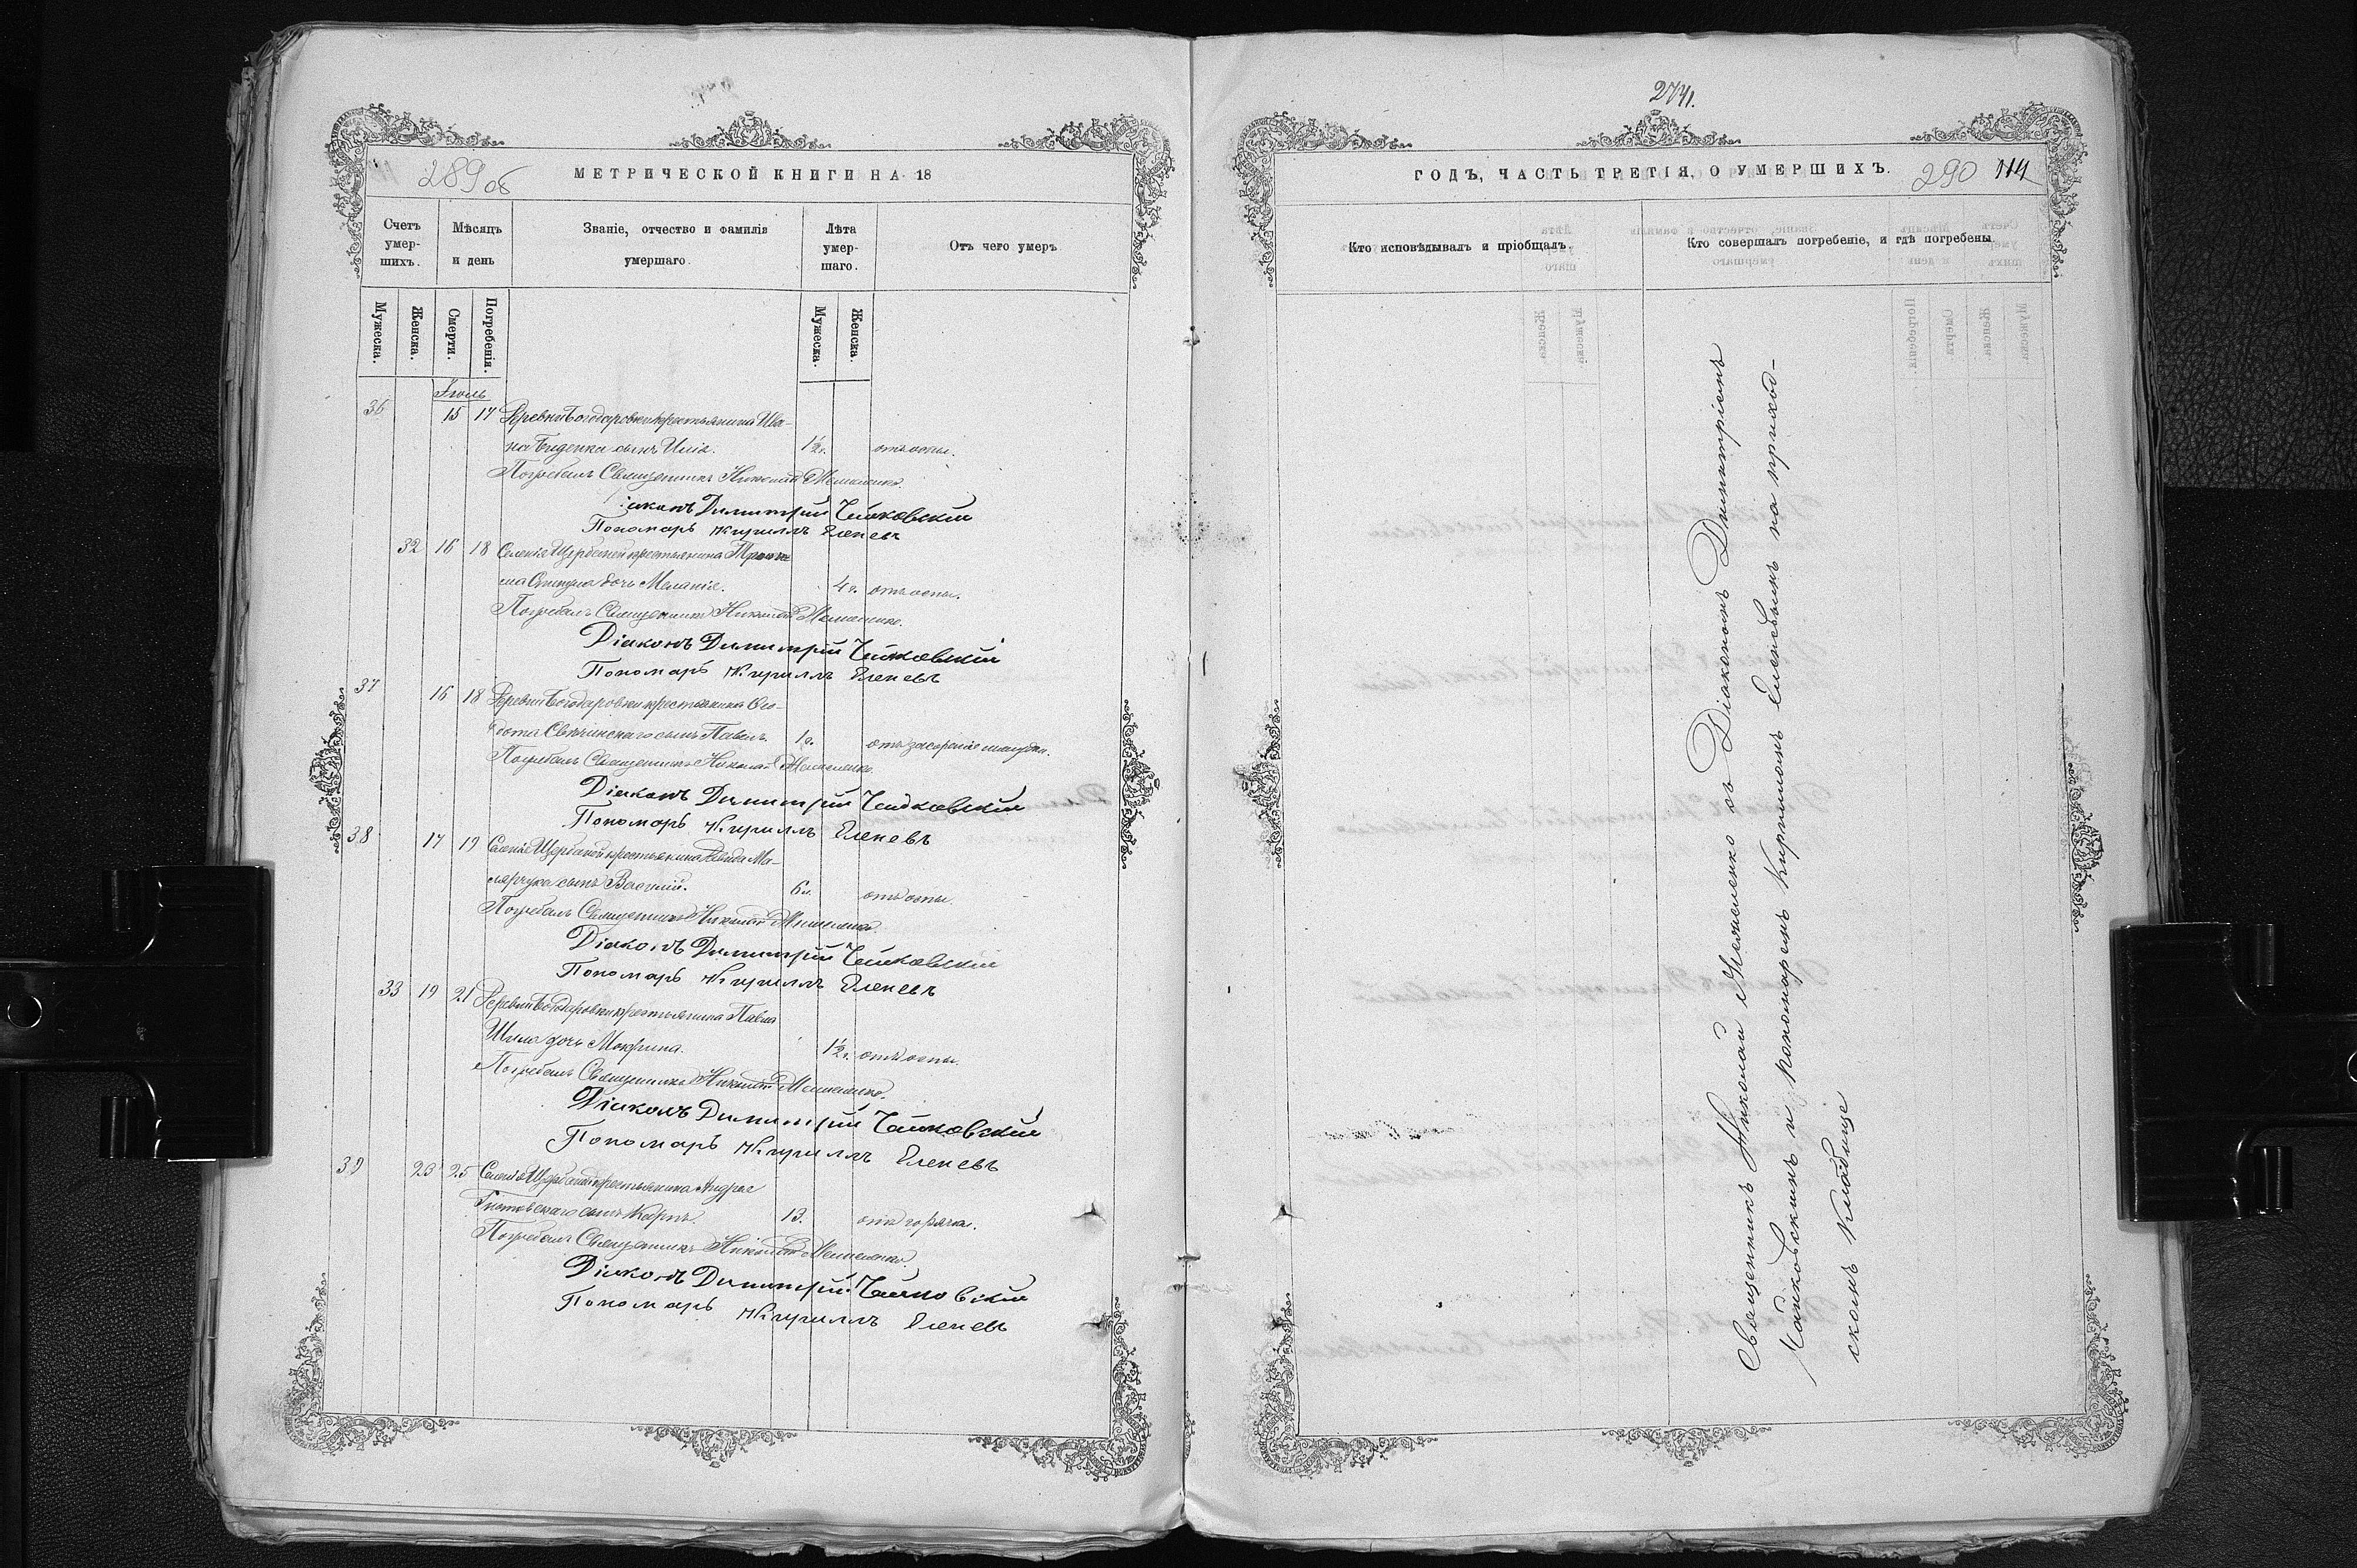 289 об
МЕТРИЧЕСКОЙ КНИГИ НА 18
Счетъ умер-шихъ.
Мѣсяцъ и день
Званіе, отчество и фамилія умершаго.
Лѣта умер-шаго.
Отъ чего умеръ
Мужеска.
Женска.
Смерти.
Погребенія.
Мужеска.
Женска.
Іюль
36 15 17 Деревни Богодаровки крестьянина Ива-
на сынъ Илія. 1½ г. отъ оспы.
Погребалъ Священникъ Николай
Діаконъ Димитрій Чайковскій
Пономарь Кириллъ Еленевъ
32 16 18 Селенія Щербаней крестьянина
дочь Меланія. 4 г. отъ оспы.
Погребалъ Священникъ Николай
Діаконъ Димитрій Чайковскій
Пономарь Кириллъ Еленевъ
37 16 18 Деревни Богодаровки крестьянина Ѳео-
дота сынъ Павелъ. 1 г. отъ засоренія желудка.
Погребалъ Священникъ Николай
Діаконъ Димитрій Чайковскій
Пономарь Кириллъ Еленевъ
38 17 19 Селенія Щербаней крестьянина Давида Ма-
лярчука сынъ Василій. 6 л. отъ оспы.
Погребалъ Священникъ Николай
Діаконъ Димитрій Чайковскій
Пономарь Кириллъ Еленевъ
33 19 21 Деревни Богодаровки крестьянина Павла
Шила дочь Мокрина. 1½ г. отъ оспы.
Погребалъ Священникъ Николай
Діаконъ Димитрій Чайковскій
Пономарь Кириллъ Еленевъ
39 23 25 Селенія Щербаней крестьянина Андрея
сынъ 13. отъ горячки.
Погребалъ Священникъ Николай
Діаконъ Димитрій Чайковскій
Пономарь Кириллъ Еленевъ
ГОДЪ, ЧАСТЬ ТРЕТІЯ, О УМЕРШИХЪ.
290
114
Кто исповѣдывалъ и пріобщалъ.
Кто совершалъ погребеніе, и гдѣ погребены
Священникъ Николай съ Діакономъ Димитріемъ
Чайковскимъ и пономаремъ Кирилломъ Еленевымъ на приход-
скомъ кладбище